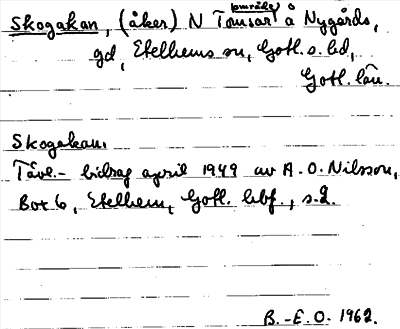 område
Skogakan, (åker) N Tomsar å Nygårds,
gd, Etelhems sn, Gotl. s. hd,
Gotl. län.
Skogakan.
Tävl.- bidrag april 1949 av A.O. Nilsson,
Box 6, Etelhem, Gotl. hbf., s. 2.
B.-E.O. 1962.